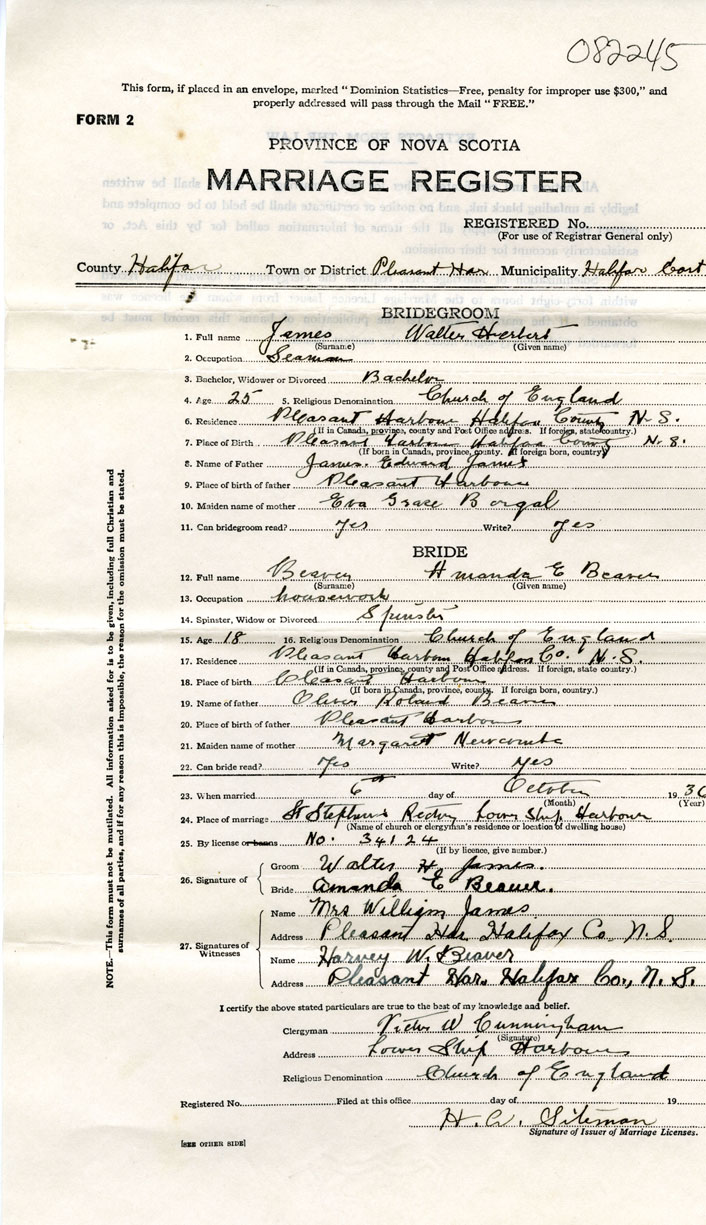 082245
This form, if placed in an envelope, marked "Dominion Statistics—Free, penalty for improper use $300," and
properly addressed will pass through the Mail "FREE."
FORM 2
PROVINCE OF NOVA SCOTIA
MARRIAGE REGISTER
REGISTERED No.
(For use of Registrar General only)
County Halifax Town or District Pleasant Har Municipality Halifax
BRIDEGROOM
1. Full name James Walter Herbert
(Surname) (Given name)
2. Occupation Seaman
3. Bachelor, Widower or Divorced Bachelor
4. Age 25 5. Religious Denomination Church of England
6. Residence Pleasant Harbour Halifax County N.S.
(If in Canada, province, county and Post Office address. If foreign, state country.)
7. Place of Birth Pleasant Harbour Halifax County N S.
(If born in Canada, province, county. If foreign born, country)
8. Name of Father James Edward James
9. Place of birth of father Pleasant Harbour
10. Maiden name of mother Eva Grace Borgal
11. Can bridegroom read? Yes Write? Yes
BRIDE
12. Full name Beaver Amanda E Beaver
(Surname) (Given name)
13. Occupation housework
14. Spinster, Widow or Divorced Spinster
15. Age 18 16. Religious Denomination Church of England
17. Residence Pleasant Harbour Halifax Co. N.S.
(If in Canada, province, county and Post Office address. If foreign, state country.)
18. Place of birth Pleasant Harbour
(If born in Canada, province, county. If foreign born, country.)
19. Name of father Oliver Roland Beaver
20. Place of birth of father Pleasant Harbour
21. Maiden name of mother Margaret Newcombe
22. Can bride read? Yes Write? Yes
23. When married 6th day of October 1936
(Month) (Year)
24. Place of marriage St Stephens Lower Ship Harbour
(Name of church or clergyman's residence or location of dwelling house)
25. By license or banns No. 34124
(If by licence, give number.)
26. Signature of
Groom Walter H. James.
Bride Amanda E Beaver.
27. Signatures of Witnesses
Name Mrs William James
Address Pleasant Har Halifax Co. N.S.
Name Harvey W. Beaver
Address Pleasant Har. Halifax Co., N.S.
I certify the above stated particulars are true to the best of my knowledge and belief.
Clergyman Victor W Cunningham
(Signature)
Address Lower Ship Harbour
Religious Denomination Church of England
Registered No. Filed at this office day of 19
H. W. Siteman
Signature of Issuer of Marriage Licenses.
[SEE OTHER SIDE]
NOTE.—This form must not be mutilated. All information asked for is to be given, including full Christian and
surnames of all parties, and if for any reason this is impossible, the reason for the omission must be stated.